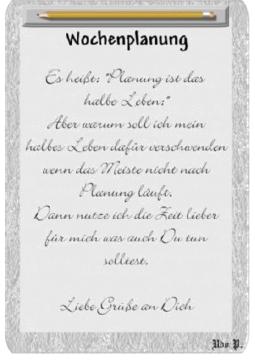 Wochenplanung
Es heißt: "Planung ist das
halbe Leben:"
Aber warum soll ich mein
halbes Leben dafür verschwenden
wenn das Meiste nicht nach
Planung läuft.
Dann nutze ich die Zeit lieber
für mich was auch Du tun
solltest.
Liebe Grüße an Dich
Udo P.